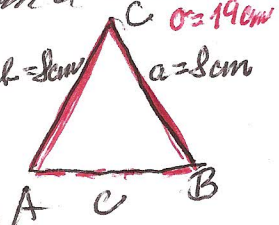 C O=19cm
b=8cm a=8cm
A c B